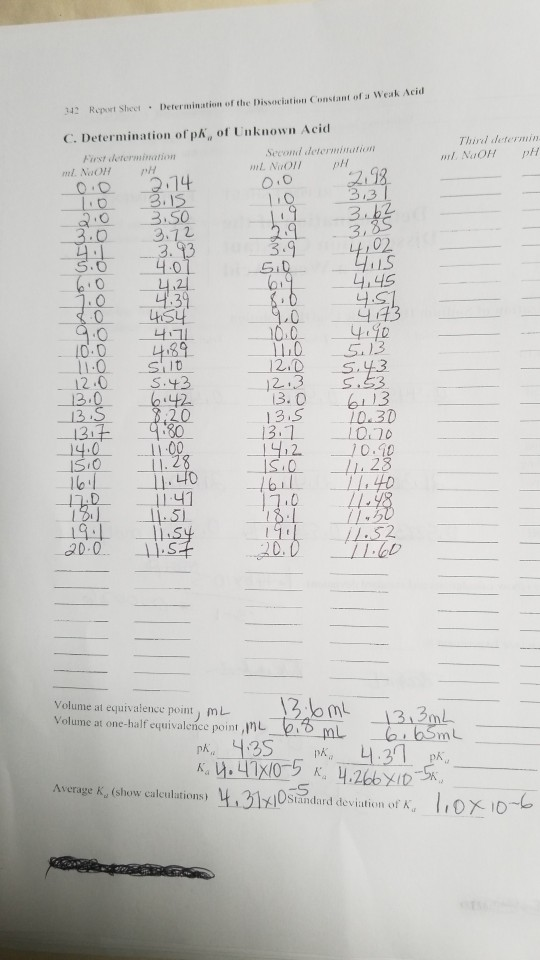 342 Report Sheet • Determination of the Dissociation Constant of a Weak Acid
C. Determination of pKa of Unknown Acid
First determination Second determination Third determin
mL NaOH pH mL NaOH pH mL NaOH pH
0.0 2.14 0.0 2.98
1.0 3.15 1.0 3.31
2.0 3.50 1.9 3.62
3.0 3.72 2.9 3.85
4.1 3.93 3.9 4.02
5.0 4.07 5.0 4.15
6.0 4.21 6.9 4.45
7.0 4.39 8.0 4.57
8.0 4.54 9.0 4.73
9.0 4.71 10.0 4.90
10.0 4.89 11.0 5.13
11.0 5.10 12.0 5.43
12.0 5.43 12.3 5.53
13.0 6.42 13.0 6.13
13.5 8.20 13.5 10.30
13.7 9.80 13.7 10.70
14.0 11.00 14.2 10.90
15.0 11.28 15.0 11.23
16.1 11.40 16.1 11.40
17.0 11.47 17.0 11.48
18.1 11.51 18.1 11.50
19.1 11.54 19.1 11.52
20.0 11.57 20.0 11.60
Volume at equivalence point, mL 13.6 mL 13.3mL
Volume at one-half equivalence point, mL 6.8 mL 6.65mL
pKa 4.35 pKa 4.37 pKa
Ka 4.47x10-5 Ka 4.266x10-5 Ka
Average Ka (show calculations) 4.37x10-5 Standard deviation of Ka 1.0x10-6